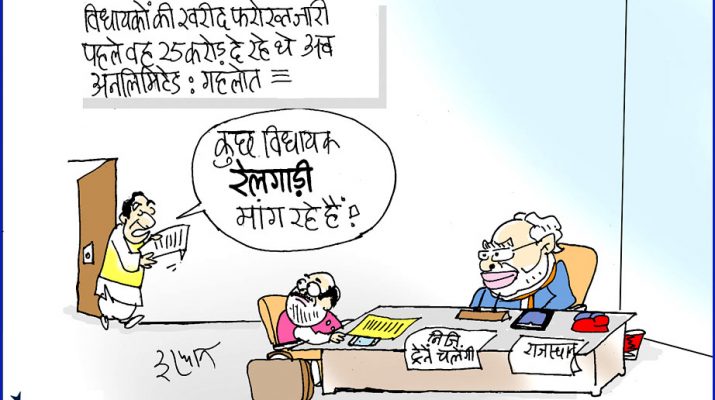 विधायकों की खरीद फरोख्त जारी
पहले वह 25 करोड़ दे रहे थे अब
अनलिमिटेड : गहलोत
कुछ विधायक
रेलगाड़ी
मांग रहे हैं?
निजि
ट्रेनें चलेंगी
राजस्थान